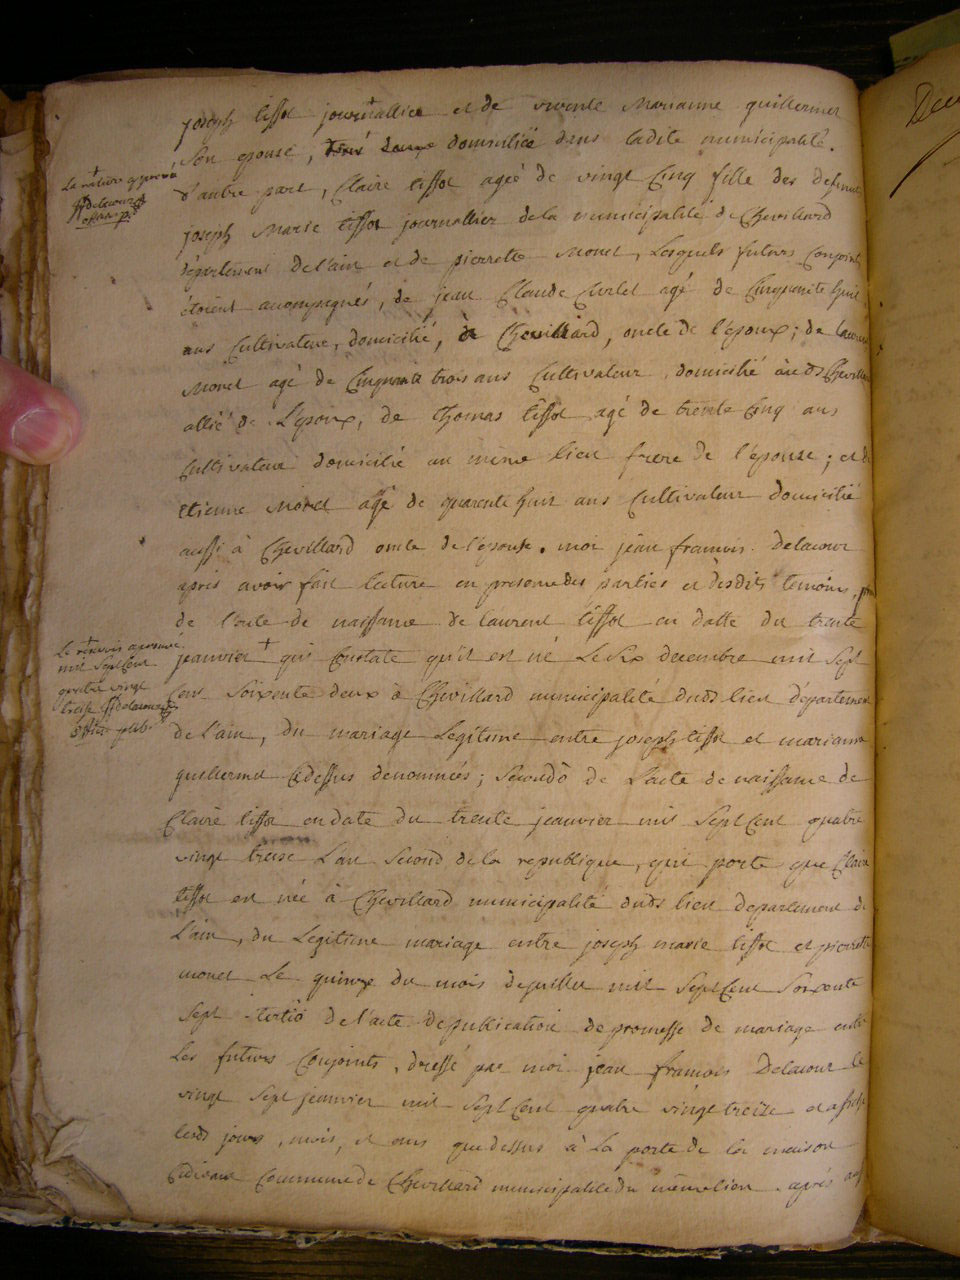 joseph tissot journallier et de vivente Marianne guillermet
son epouse, domicilliés dens ladite municipalité.
d'autre part, Claire tissot ageé de vingt Cinq fille des defunt
joseph Marie tissot journallier de la municipalité de Chevillard
département de l'ain et de pierrette Monet, Lesquels futurs Conjoints
étoient acompagnés, de jean Claude Curlet agé de Cinquante huit
ans Cultivateur, domicilié, à Chevillard, oncle de l'époux; de laurent
Monet agé de Cinquante trois ans Cultivateur domicilié Chevillard
allié de L'époux, de thomas tissot agé de trente Cinq ans
Cultivateur domicilié au même lieu frere de l'épouse; et de
etienne Monet agé de quarente huit ans Cultivateur domicilié
aussi à Chevillard oncle de l'épouse. moi jean francois Delacour
après avoir fait lecture en presence des parties et desdits temoins,
de l'acte de naissance de laurent tissot en datte du trente
jeanvier + qui Constate qu'il est né Le Six decembre mil Sept
Cent Soixente deux à Chevillard municipalité dud lieu département
de l'ain, du mariage Legitime entre joseph tissot et marianne
guillermet Cidessus denommées; Secundò de L'acte de naissance de
Claire tissot en date du trente jeanvier mil Sept Cent quatre
vingt treise L'an Second de la republique, qui porte que Claire
tissot est née à Chevillard municipalité dud lieu departement de
L'ain, du Legitime mariage entre joseph marie tissot et pierrette
monet Le quinze du mois de juillet mil Sept Cent Soixente
Sept tertiò de l'acte de publication de promesse de mariage entre
Les futurs Conjoints, dressé par moi jean francois Delacour le
vingt Sept jeanvier mil Sept Cent quatre vingt treize et affiché
lesd jours, mois, et ans que dessus à La porte de la maison
Commune de Chevillard municipalité du même lieu. après
La rature approuvé
Delacour
off. pub.
Le renvoi aprouvé
mil Sept Cent
quatre vingt
treise Delacour
off. pub.